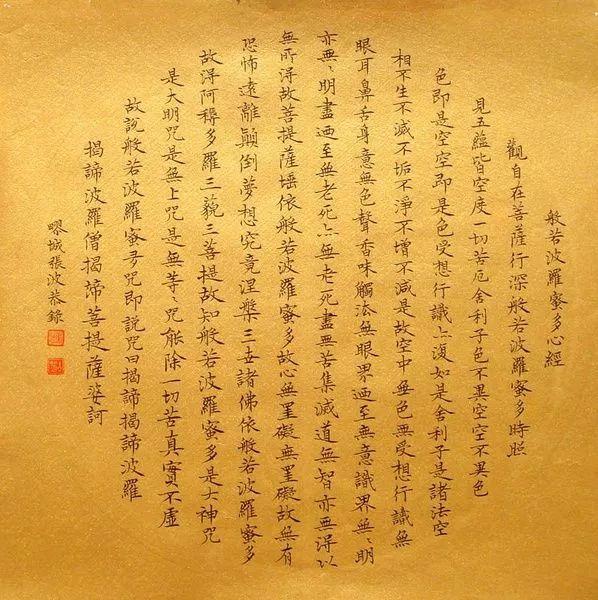 般若波羅蜜多心經
觀自在菩薩行深般若波羅蜜多時照
見五蘊皆空度一切苦厄舍利子色不異空空不異色
色即是空空即是色受想行識亦復如是舍利子是諸法空
相不生不滅不垢不淨不增不減是故空中無色無受想行識無
眼耳鼻舌身意無色聲香味觸法無眼界廼至無意識界無〻明
亦無〻明盡廼至無老死亦無老死盡無苦集滅道無智亦無得以
無所得故菩提薩埵依般若波羅蜜多故心無罣礙無罣礙故無有
恐怖遠離顛倒夢想究竟涅槃三世諸佛依般若波羅蜜多
故得阿耨多羅三藐三菩提故知般若波羅蜜多是大神咒
是大明咒是無上咒是無等〻咒能除一切苦真實不虛
故說般若波羅蜜多咒即說咒曰揭諦揭諦波羅
揭諦波羅僧揭諦菩提薩婆訶
疁城張波恭錄